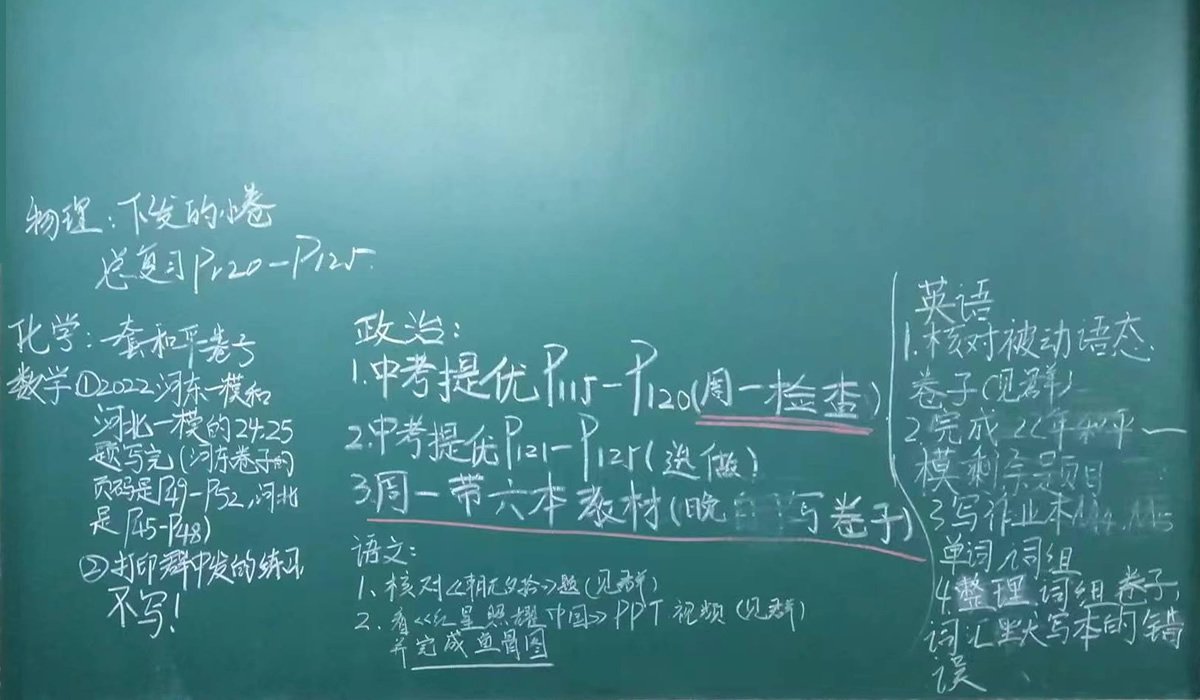 物理：下发的小卷
总复习P120-P125.
化学：套和平卷子
数学①2022河东一模和
河北一模的24.25
题写完(河东卷子的
页码是P49-P52,河北
是P45-P48)
②打印群中发的练习
不写！
政治：
1.中考提优P115-P120(周一检查)
2.中考提优P121-P125(选做)
3周一带六本教材(晚写卷子)
语文：
1、核对《朝花夕拾》题(见群)
2、看《红星照耀中国》PPT视频(见群)
并完成鱼骨图
英语
1.核对被动语态.
卷子(见群)
2.完成22年和平一
模剩余题目
3写作业本
单词词组
4.整理词组卷子,
词汇默写本的错
误